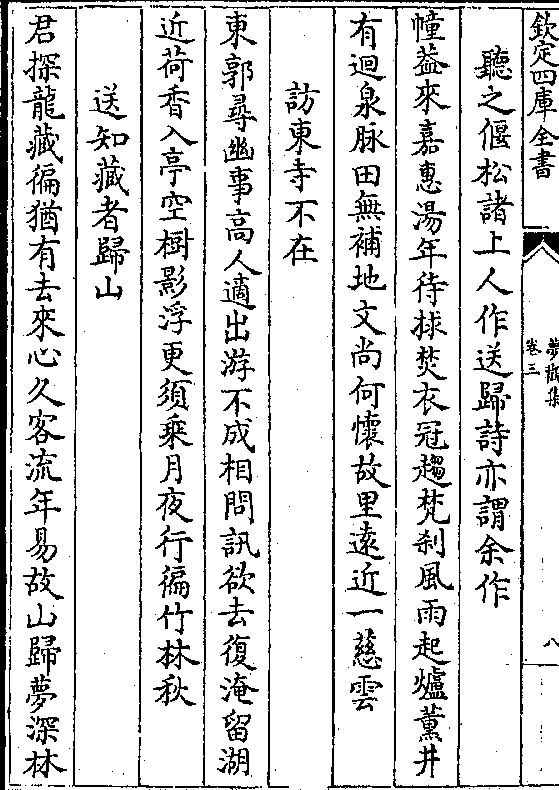 欽定四庫全書
夢觀集
卷三
八
聽之偃松諸上人作送歸詩亦謂余作
幢葢來嘉惠湯年待拯焚衣冠趨梵刹風雨起爐薰井
有迴泉脉田無補地文尚何懷故里逺近一慈雲
訪東寺不在
東郭尋幽事高人適出游不成相問訊欲去復淹留湖
近荷香入亭空樹影浮更須乘月夜行徧竹林秋
送知藏者歸山
君探龍藏徧猶有去來心久客流年易故山歸夢深林